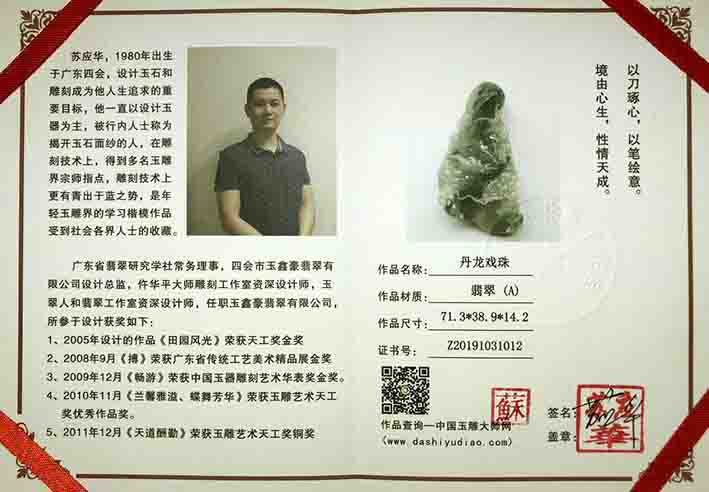 苏应华，1980年出生
于广东四会，设计玉石和
雕刻成为他人生追求的重
要目标，他一直以设计玉
器为主，被行内人士称为
揭开玉石面纱的人，在雕
刻技术上，得到多名玉雕
界宗师指点，雕刻技术上
更有青出于蓝之势，是年
轻玉雕界的学习楷模作品
受到社会各界人士的收藏。
广东省翡翠研究学社常务理事，四会市玉鑫豪翡翠有
限公司设计总监，仵华平大师雕刻工作室资深设计师，玉
翠人和翡翠工作室资深设计师，任职玉鑫豪翡翠有限公司，
所参于设计获奖如下：
1、2005年设计的作品《田园风光》荣获天工奖金奖
2、2008年9月《搏》荣获广东省传统工艺美术精品展金奖
3、2009年12月《畅游》荣获中国玉器雕刻艺术华表奖金奖。
4、2010年11月《兰馨雅溢、蝶舞芳华》荣获玉雕艺术天工
奖优秀作品奖。
5、2011年12月《天道酬勤》荣获玉雕艺术天工奖铜奖
以刀琢心，以笔绘意。
境由心生，性情天成。
作品名称：丹龙戏珠
作品材质：翡翠（A）
作品尺寸：71.3*38.9*14.2
证书号：Z20191031012
蘇
签名：
盖章：
作品查询—中国玉雕大师网
（www.dashiyudiao.com）